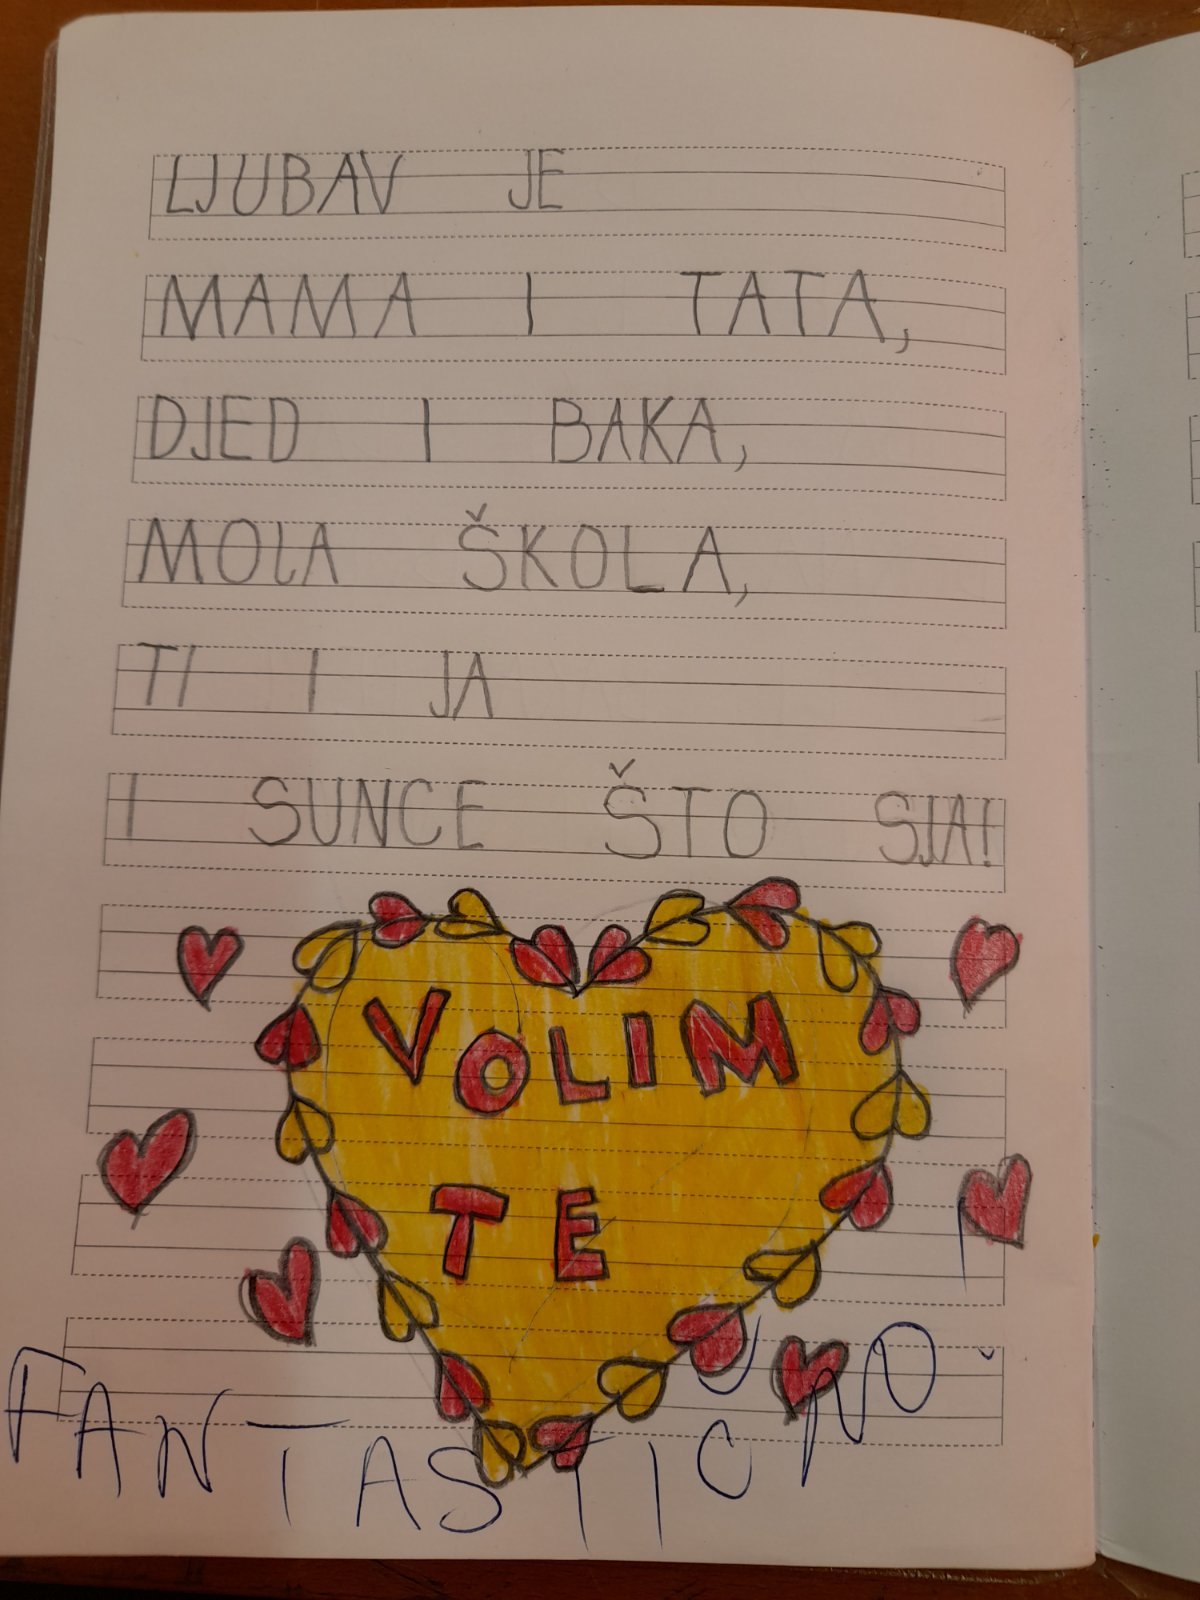 LJUBAV JE
MAMA I TATA,
DJED I BAKA,
MOJA ŠKOLA,
TI I JA
I SUNCE ŠTO SJA!
VOLIM
TE
FANTASTIČNO!